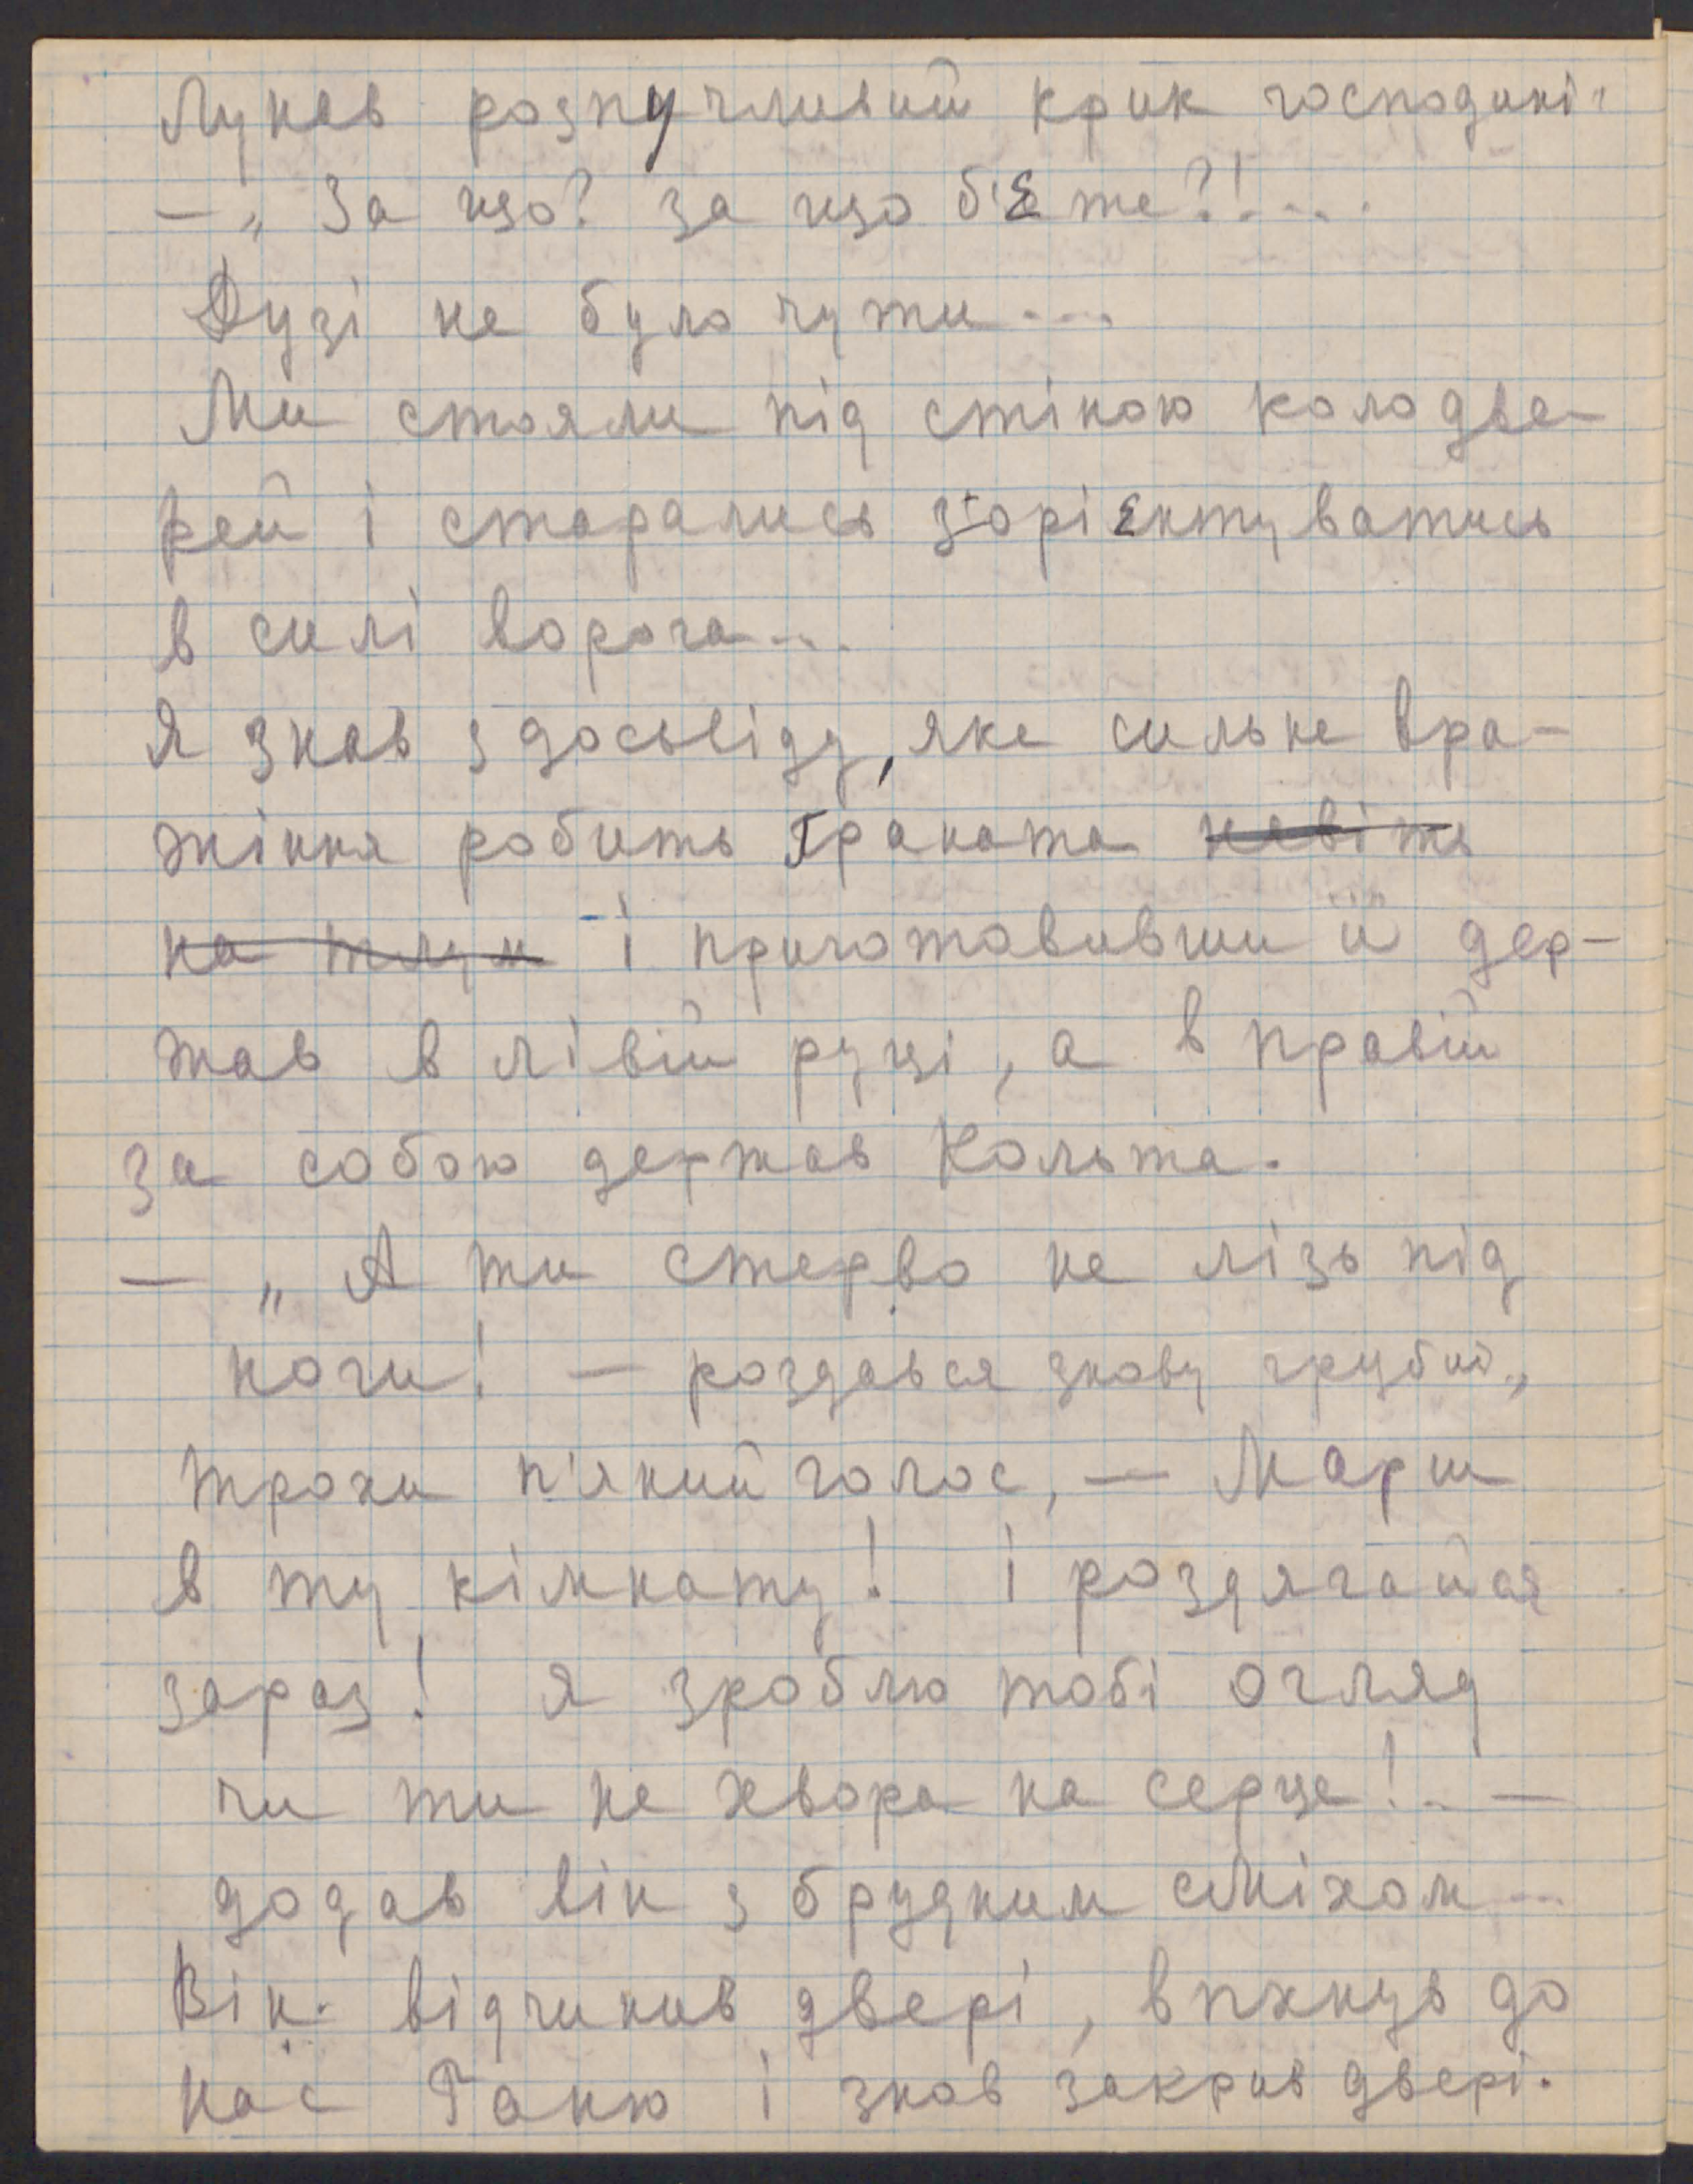 Лунав розпучливий крик господині:
— „За що? за що б'єте?!....
Дузі не було чути....
Ми стояли під стіною коло две-
рей і старались з'орієнтуватись
в силі ворога...
Я знав з досьвіду, яке сильне вра-
жіння робить ґраната навіть
на тлум і приготовивши її дер-
жав в лівій руці, а в правій
за собою держав Кольта.
— „А ти стерво не лізь під
ноги! — роздався знову грубий,
трохи п'яний голос, — Марш
в ту кімнату! і роздягайся
зараз! Я зроблю тобі огляд
чи ти не хвора на серце!.. —
додав він з брудним сміхом...
Він відчинив двері, впхнув до
нас Ганю і знов закрив двері.